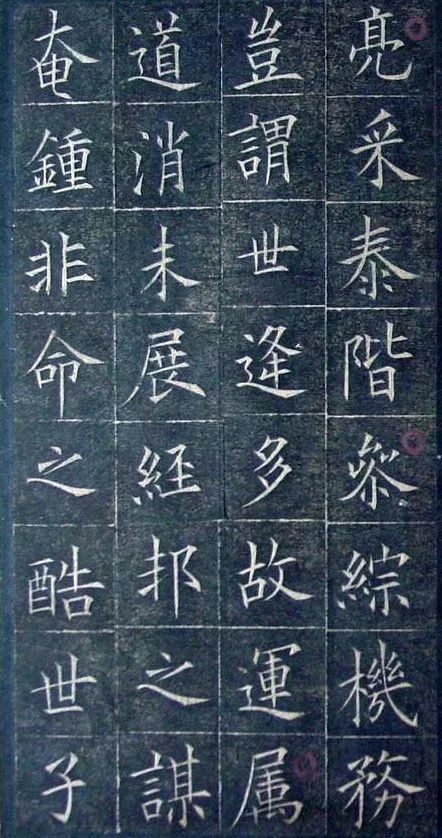 亮采泰階叅綜機務
豈謂世逢多故運属
道消未展経邦之謀
奄鍾非命之酷世子